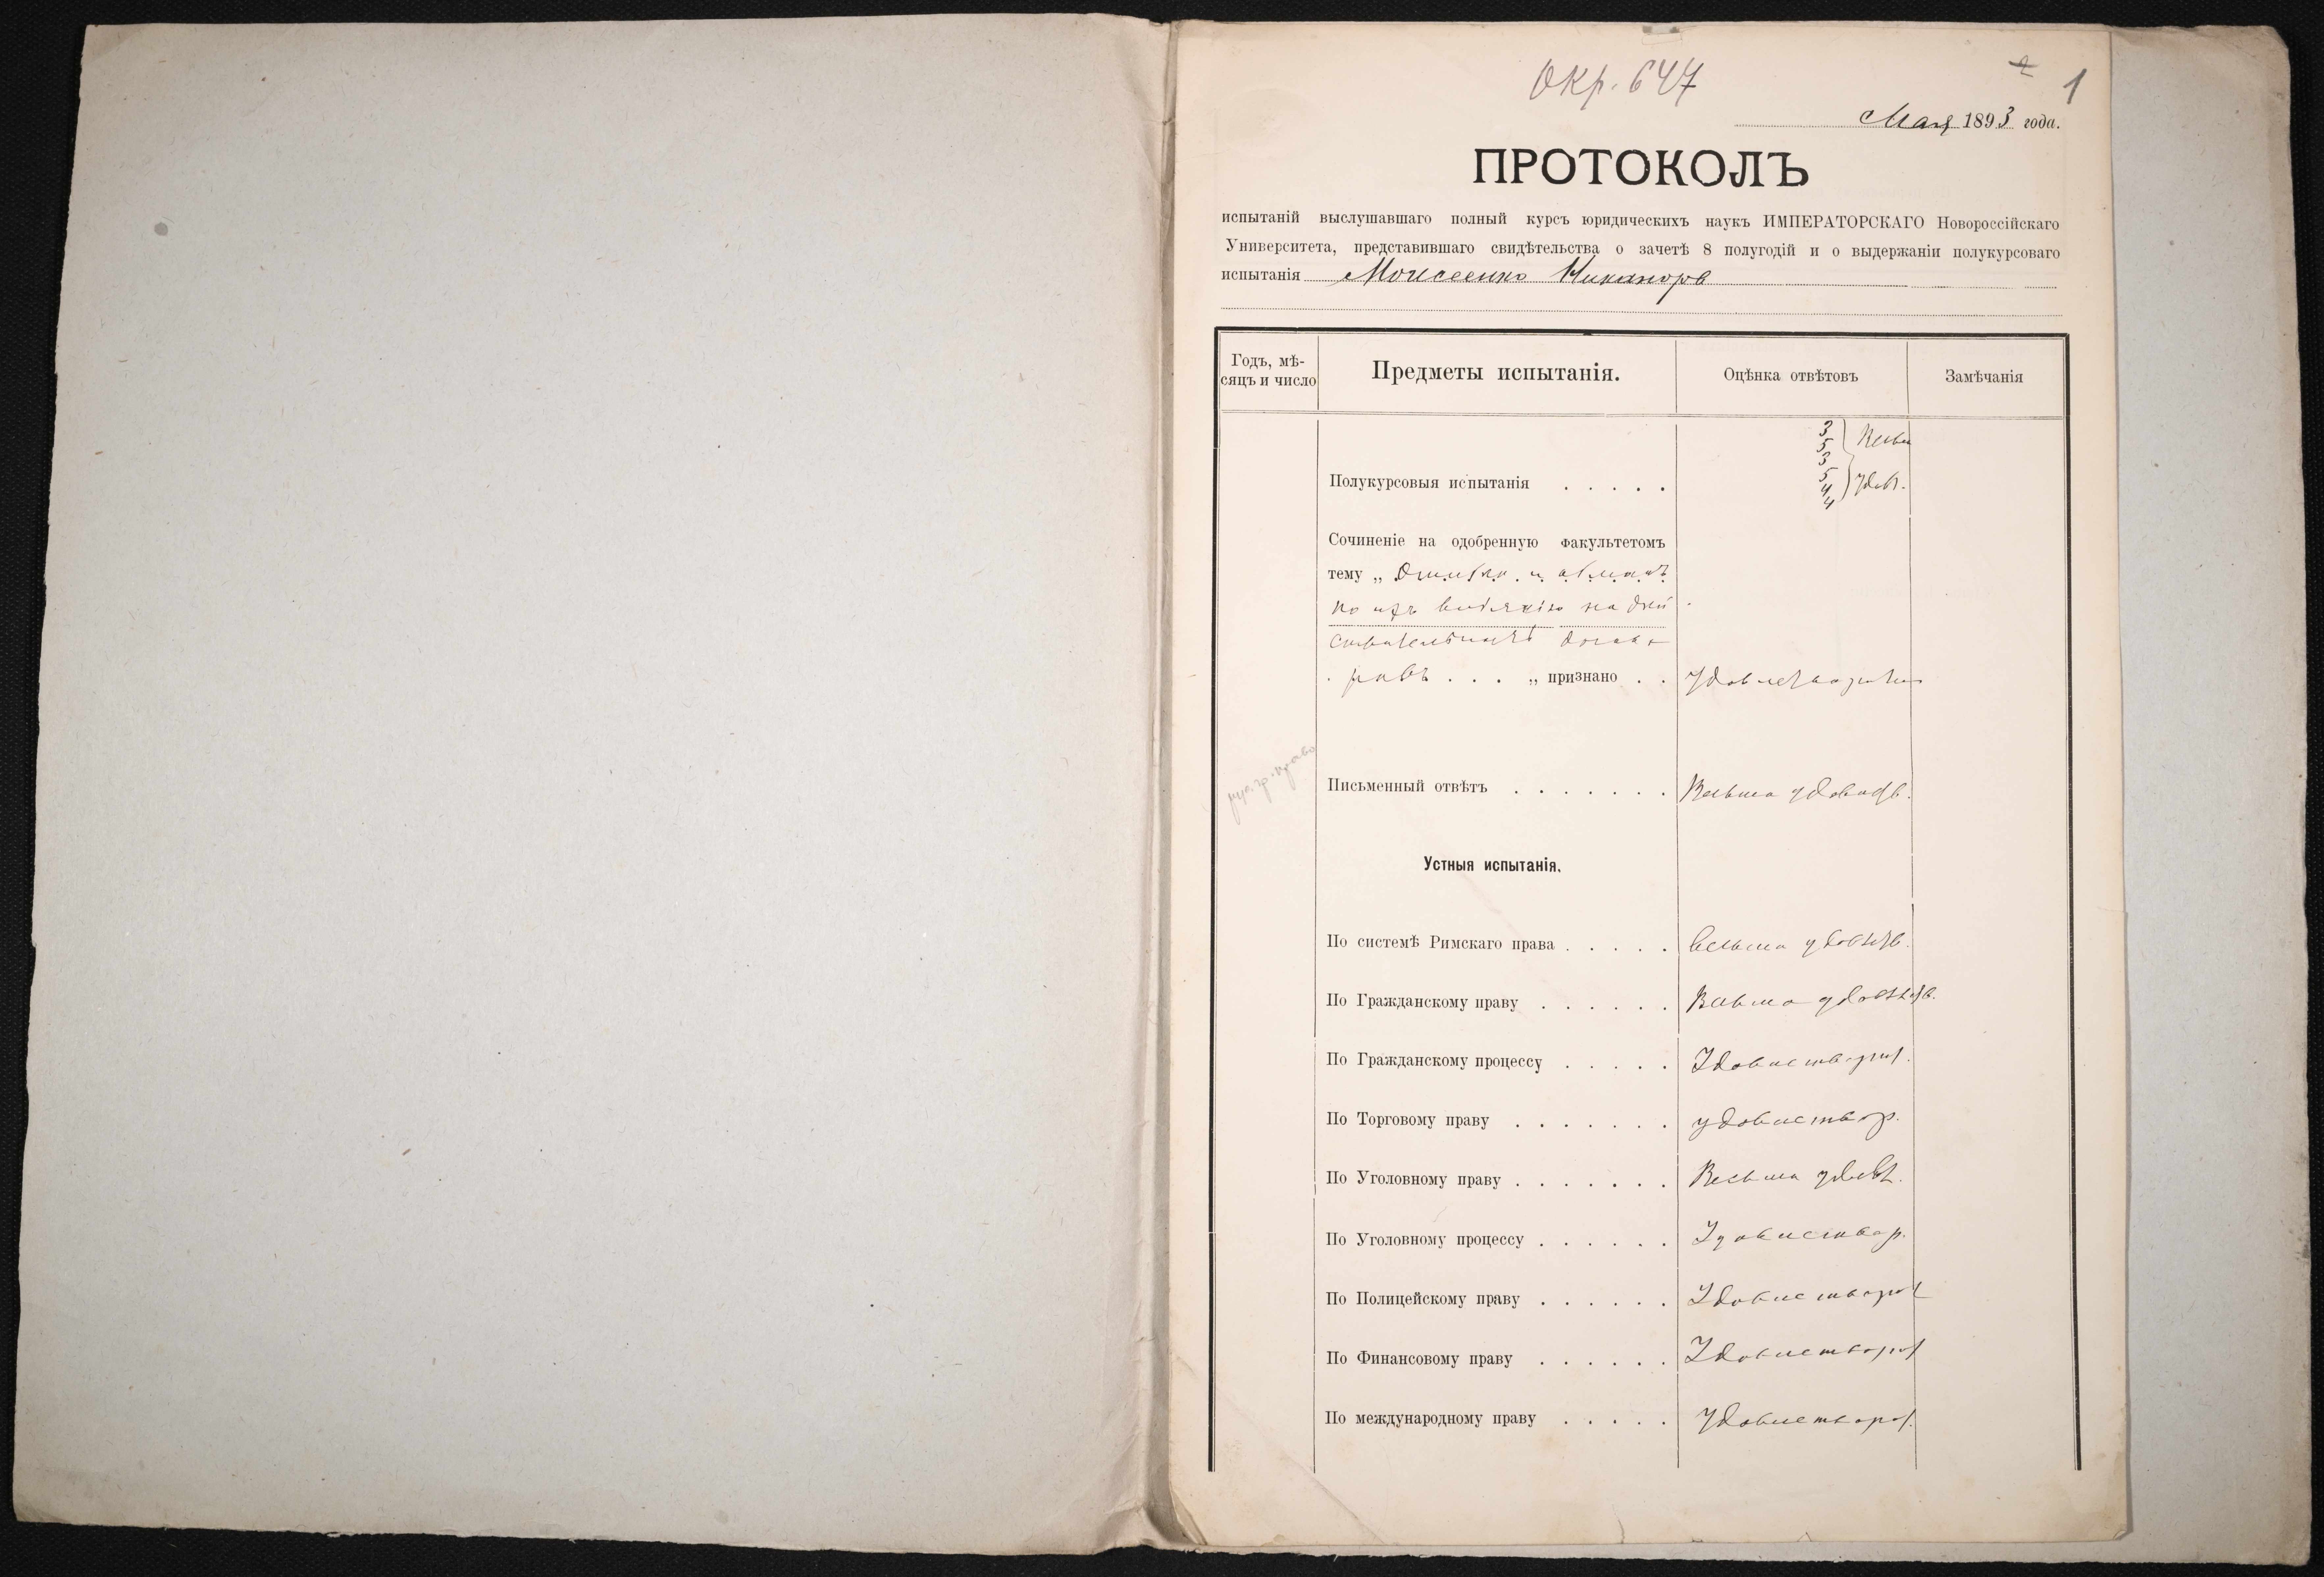 Окр. 647
2 1
Мая 1893 года.
ПРОТОКОЛЪ
испытаній выслушавшаго полный курсъ юридическихъ наукъ ИМПЕРАТОРСКАГО Новороссійскаго
Университета, представившаго свидѣтельства о зачетѣ 8 полугодій и о выдержаніи полукурсоваго
испытанія Моисеенко Никаноръ
Годъ, мѣ-
сяцъ и число
Предметы испытанія.
Оцѣнка отвѣтовъ
Замѣчанія
3
5
3
5
4
4
Весьма
удовл.
Полукурсовыя испытанія . . . . .
Сочиненіе на одобренную факультетомъ
тему „ Ошибка и обманъ
по ихъ вліянію на дѣй
ствительность догово
ровъ . . . „ признано . . Удовлетворительно
рус. гр. право
Письменный отвѣтъ . . . . . . . Весьма удовлетв.
Устныя испытанія.
По системѣ Римскаго права . . . . . весьма удовлетв.
По Гражданскому праву . . . . . . Весьма удовлетв.
По Гражданскому процессу . . . . . Удовлетворит.
По Торговому праву . . . . . . . удовлетвор.
По Уголовному праву . . . . . . . Весьма удовл.
По Уголовному процессу . . . . . . Удовлетвор.
По Полицейскому праву . . . . . . Удовлетворит
По Финансовому праву . . . . . . Удовлетворит
По международному праву . . . . . Удовлетворит.